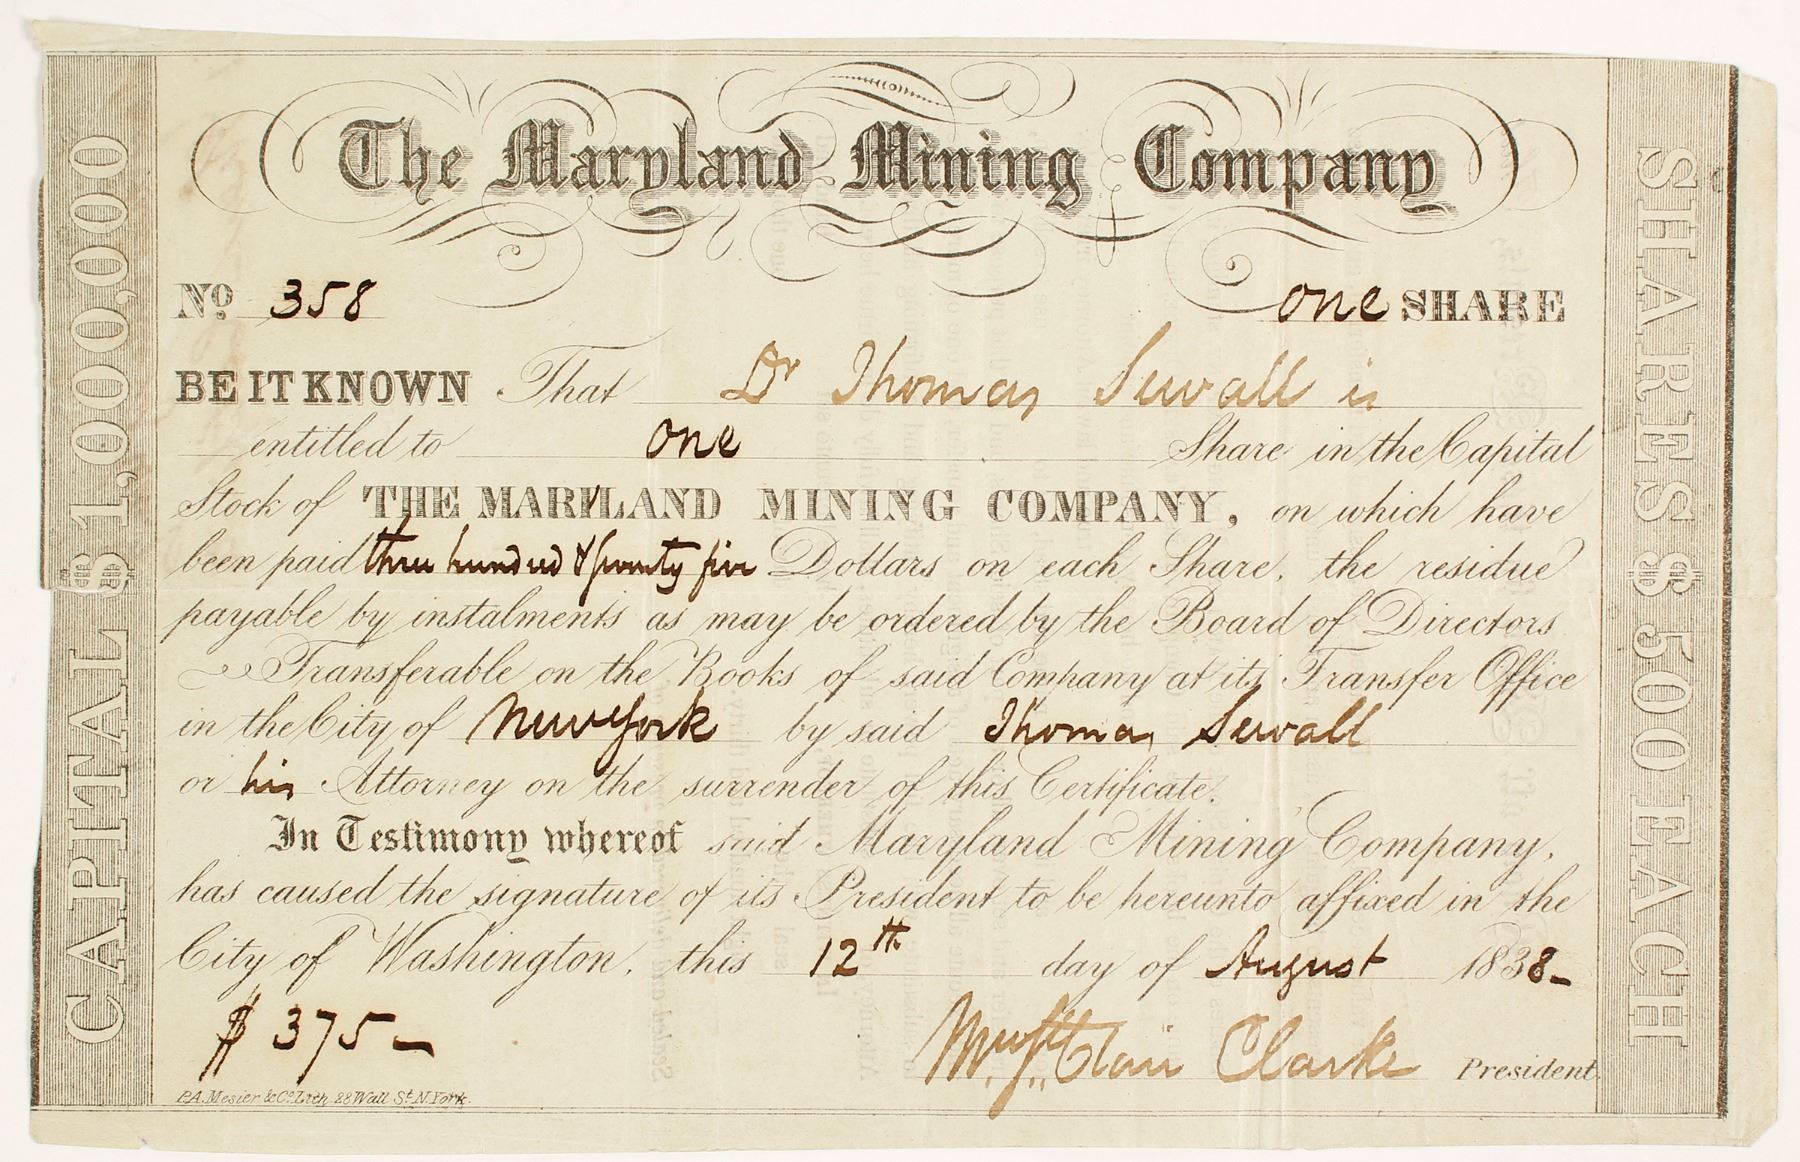 The Maryland Mining Company
No. 358 one SHARE
BE IT KNOWN That Dr Thomas Sewall is
entitled to one Share in the Capital
Stock of THE MARYLAND MINING COMPANY, on which have
been paid three hundred & seventy five Dollars on each Share, the residue
payable by instalments as may be ordered by the Board of Directors
Transferable on the Books of said Company at its Transfer Office
in the City of New York by said Thomas Sewall
or his Attorney on the surrender of this Certificate.
In Testimony whereof said Maryland Mining Company,
has caused the signature of its President to be hereunto affixed in the
City of Washington, this 12th day of August 1838-
$375-
Clair Clarke President
P.A. Mesier & Co. Lith. 28 Wall St. N. York
CAPITAL $1,000,000
SHARES $500 EACH